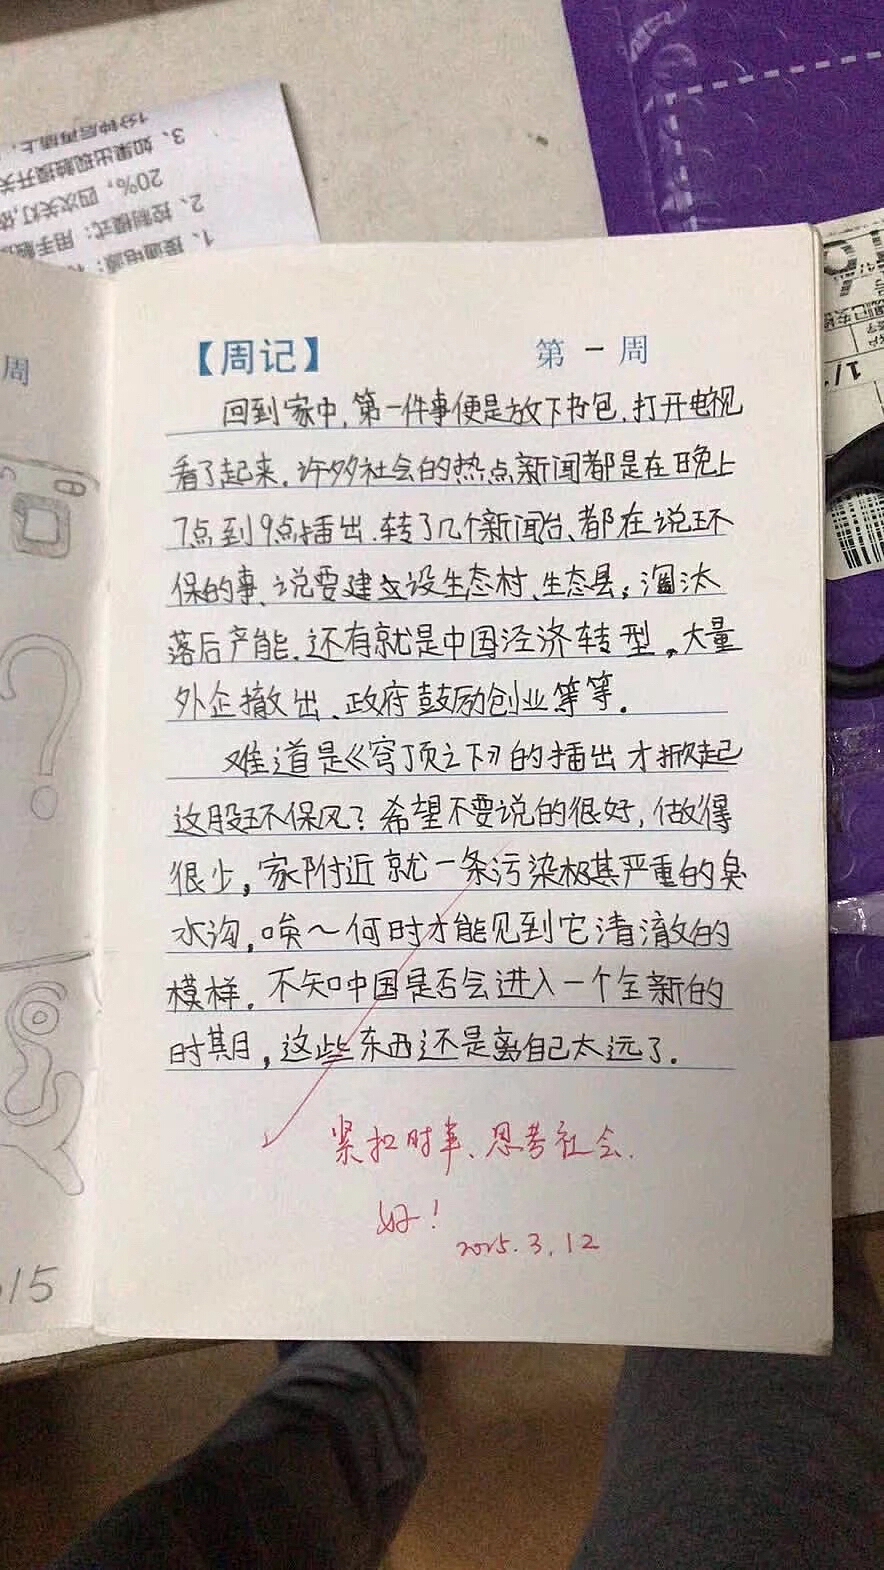 1分钟后再插上,
3、如果出现触摸开关
20%,四次关灯,依
2、控制模式:用手触
1、接通电源:
周
【周记】 第一周
回到家中,第一件事便是放下书包,打开电视
看了起来.许多社会的热点新闻都是在晚上
7点到9点播出.转了几个新闻台、都在说环
保的事、说要建立设生态村、生态县;淘汰
落后产能.还有就是中国泾济转型,大量
外企撤出、政府鼓励创业等等.
难道是《穹顶之下》的播出才掀起
这股环保风?希望不要说的很好,做得
很少,家附近就一条污染极其严重的臭
水沟,唉~何时才能见到它清澈的
模样.不知中国是否会进入一个全新的
时期,这些东西还是离自己太远了.
紧扣时事、思考社会.
好!
2015.3.12
015